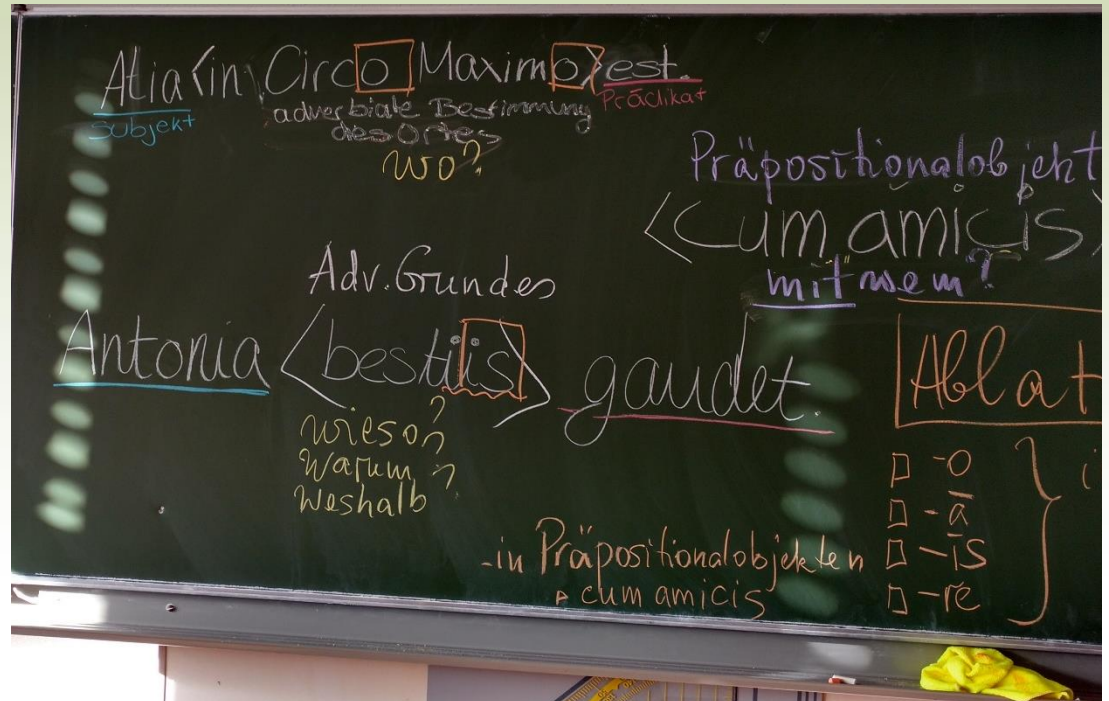 Atia <in Circo Maximo> est.
Subjekt
adverbiale Bestimmung
des Ortes
Prädikat
wo?
Präpositionalobjekt
<cum amicis>
mit wem?
Adv. Grundes
Antonia <bestiis> gaudet.
wieso?
Warum?
Weshalb?
Ablat
-o
-ā
-īs
-re
i
-in Präpositionalobjekten
▸ cum amicis